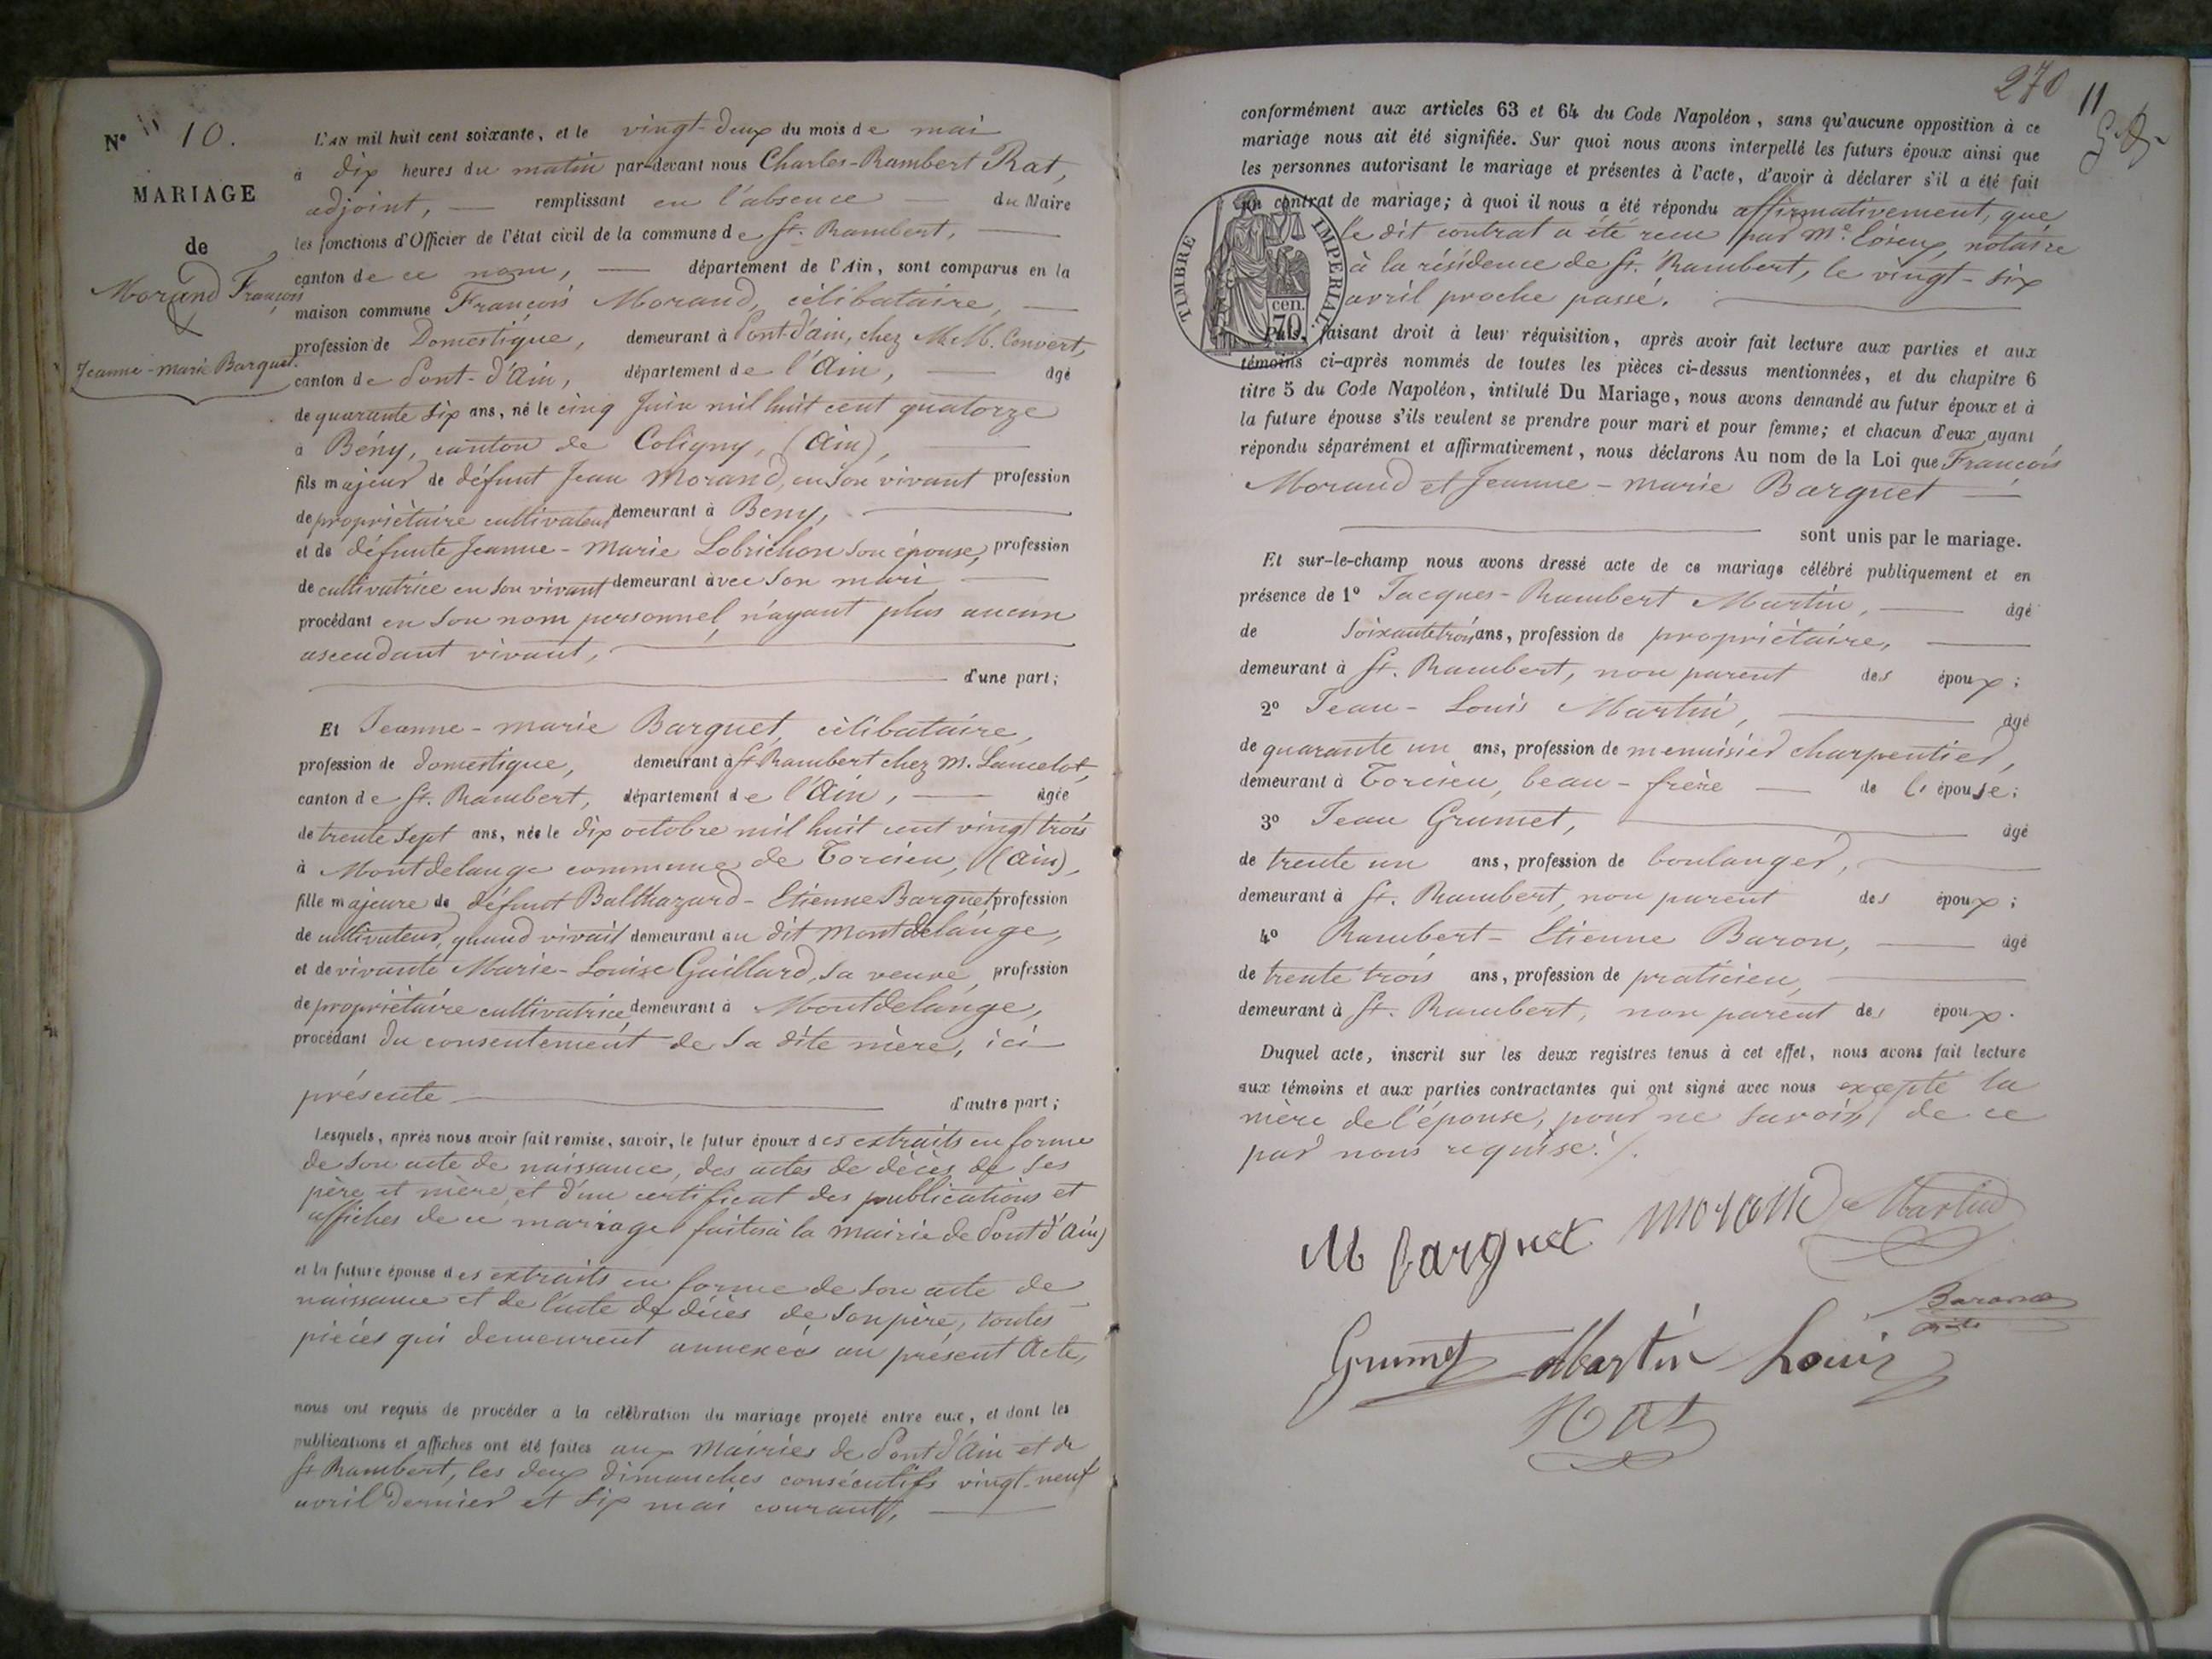 N° 10.
MARIAGE
de
Morand François
&
Jeanne-marie Barquet.
L'AN mil huit cent soixante, et le vingt-deux du mois de mai
à dix heures du matin par-devant nous Charles-Rambert Rat,
adjoint, — remplissant en l'absence — du Maire
les fonctions d'Officier de l'état civil de la commune de St. Rambert, —
canton de ce nom, — département de l'Ain, sont comparus en la
maison commune François Morand, célibataire, —
profession de Domestique, demeurant à Pont-d'ain, chez M.M. Convert,
canton de Pont-d'Ain, département de l'Ain, — âgé
de quarante six ans, né le cinq Juin mil huit cent quatorze
à Bény, canton de Coligny, (Ain), —
fils majeur de défunt Jean Morand, en son vivant profession
de propriétaire cultivateur demeurant à Beny, —
et de défunte Jeanne-Marie Lobrichon son épouse, profession
de cultivatrice en son vivant demeurant avec son mari —
procédant en son nom personnel, n'ayant plus aucun
ascendant vivant, —
— d'une part;
Et Jeanne-marie Barquet, célibataire,
profession de domestique, demeurant à St Rambert chez M. Lancelot,
canton de St. Rambert, département de l'Ain, — âgée
de trente sept ans, née le dix octobre mil huit cent vingt trois
à Montdelange commune de Torcieu, (Ain),
fille majeure de défunt Balthazard-Etienne Barquet profession
de cultivateur, quand vivait demeurant au dit Montdelange,
et de vivante Marie-Louise Gaillard, sa veuve, profession
de propriétaire cultivatrice demeurant à Montdelange,
procédant du consentement de sa dite mère, ici
présente — d'autre part;
Lesquels, après nous avoir fait remise, savoir, le futur époux des extraits en forme
de son acte de naissance, des actes de décès de ses
père et mère, et d'un certificat des publications et
affiches de ce mariage faites à la mairie de Pont d'Ain)
et la future épouse des extraits en forme de son acte de
naissance et de l'acte de décès de son père, toutes
pièces qui demeurent annexées au présent Acte,
nous ont requis de procéder à la célébration du mariage projeté entre eux, et dont les
publications et affiches ont été faites aux Mairies de Pont d'Ain et de
St Rambert, les deux dimanches consécutifs vingt-neuf
avril dernier et six mai courant, —
270
11
conformément aux articles 63 et 64 du Code Napoléon, sans qu'aucune opposition à ce
mariage nous ait été signifiée. Sur quoi nous avons interpellé les futurs époux ainsi que
les personnes autorisant le mariage et présentes à l'acte, d'avoir à déclarer s'il a été fait
un contrat de mariage; à quoi il nous a été répondu affirmativement, que
le dit contrat a été reçu par Me. notaire
à la résidence de St. Rambert, le vingt-six
avril proche passé. —
TIMBRE IMPERIAL.
cen.
70
Puis, faisant droit à leur réquisition, après avoir fait lecture aux parties et aux
témoins ci-après nommés de toutes les pièces ci-dessus mentionnées, et du chapitre 6
titre 5 du Code Napoléon, intitulé Du Mariage, nous avons demandé au futur époux et à
la future épouse s'ils veulent se prendre pour mari et pour femme; et chacun d'eux ayant
répondu séparément et affirmativement, nous déclarons Au nom de la Loi que François
Morand et Jeanne-marie Barquet —
— sont unis par le mariage.
Et sur-le-champ nous avons dressé acte de ce mariage célébré publiquement et en
présence de 1° Jacques-Rambert Martin, — âgé
de soixante trois ans, profession de propriétaire, —
demeurant à St. Rambert, non parent des époux;
2° Jean-Louis Martin, — âgé
de quarante un ans, profession de menuisier charpentier,
demeurant à Torcieu, beau-frère — de l'épouse;
3° Jean Grumet, — âgé
de trente un ans, profession de boulanger, —
demeurant à St. Rambert, non parent des époux;
4° Rambert-Etienne Baron, — âgé
de trente trois ans, profession de praticien, —
demeurant à St. Rambert, non parent des époux.
Duquel acte, inscrit sur les deux registres tenus à cet effet, nous avons fait lecture
aux témoins et aux parties contractantes qui ont signé avec nous excepté la
mère de l'épouse, pour ne savoir, de ce
par nous requise./.
M Barquet Morand Martin
Baron
Grumet Martin Louis
Rat